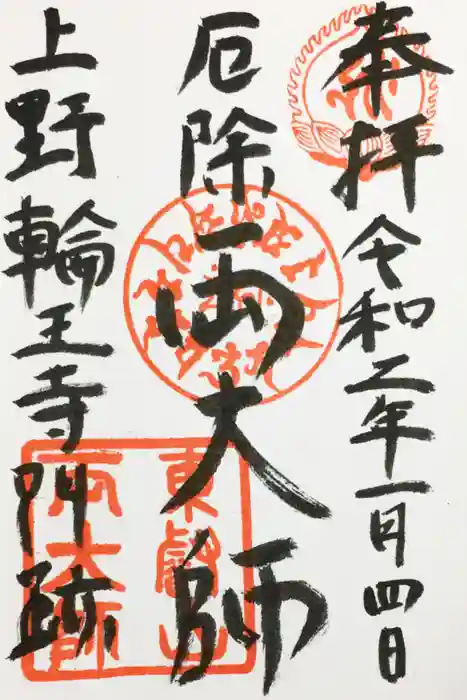 奉拝 令和二年一月四日
厄除 両大師
上野輪王寺門跡
東叡山
両大師